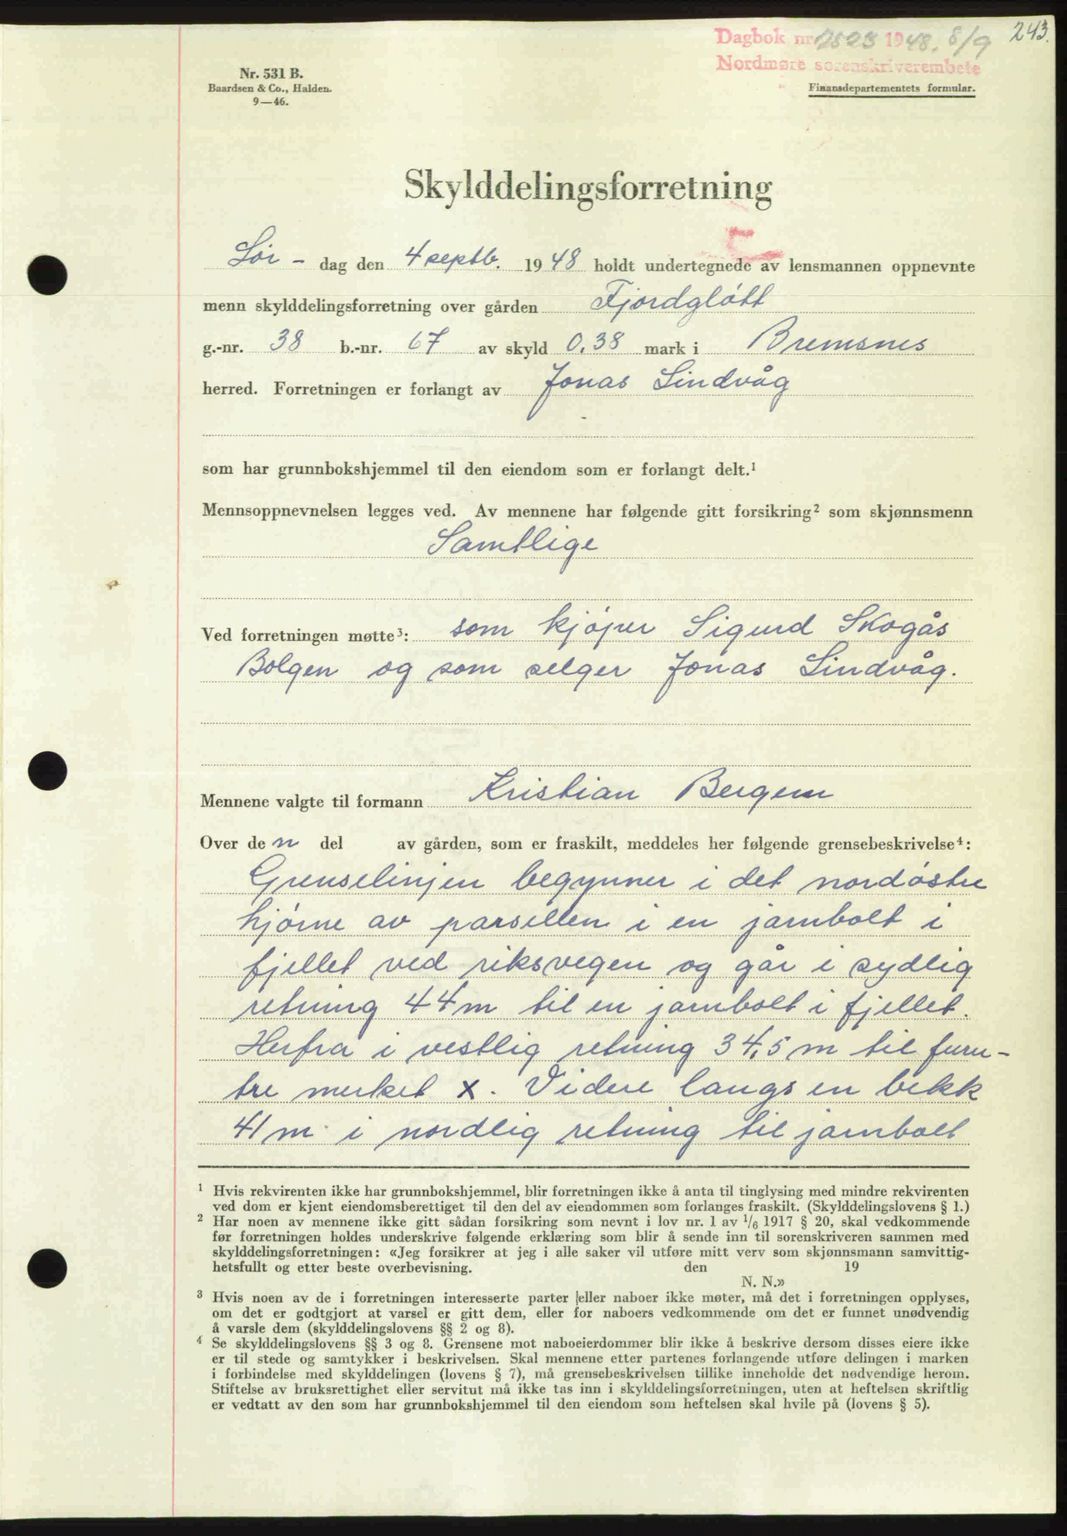 243.
Dagbok nr. 2523 1948. 8/9
Nordmøre sorenskriverembete
Nr. 531 B.
Baardsen & Co., Halden.
9—46.
Finansdepartementets formular.
Skylddelingsforretning
Lör - dag den 4 septb. 1948 holdt undertegnede av lensmannen oppnevnte
menn skylddelingsforretning over gården Fjordglött
g.-nr. 38 b.-nr. 67 av skyld 0,38 mark i Bremsnes
herred. Forretningen er forlangt av Jonas Lindvåg
som har grunnbokshjemmel til den eiendom som er forlangt delt.¹
Mennsoppnevnelsen legges ved. Av mennene har følgende gitt forsikring² som skjønnsmenn
Samtlige
Ved forretningen møtte³: som kjöper Sigurd Skogås
Bolgen og som selger Jonas Lindvåg.
Mennene valgte til formann Kristian Bergem
Over den del av gården, som er fraskilt, meddeles her følgende grensebeskrivelse⁴:
Grenselinjen begynner i det nordöstre
hjörne av parsellen i en jarnbolt i
fjellet ved riksvegen og går i sydlig
retning 44 m til en jarnbolt i fjellet.
Herfra i vestlig retning 34,5 m til furu-
tre merket x. Videre langs en bekk
41 m i nordlig retning til jarnbolt
¹ Hvis rekvirenten ikke har grunnbokshjemmel, blir forretningen ikke å anta til tinglysing med mindre rekvirenten
ved dom er kjent eiendomsberettiget til den del av eiendommen som forlanges fraskilt. (Skylddelingslovens § 1.)
² Har noen av mennene ikke gitt sådan forsikring som nevnt i lov nr. 1 av 1/6 1917 § 20, skal vedkommende
før forretningen holdes underskrive følgende erklæring som blir å sende inn til sorenskriveren sammen med
skylddelingsforretningen: «Jeg forsikrer at jeg i alle saker vil utføre mitt verv som skjønnsmann samvittig-
hetsfullt og etter beste overbevisning. den 19
N. N.»
³ Hvis noen av de i forretningen interesserte parter eller naboer ikke møter, må det i forretningen opplyses,
om det er godtgjort at varsel er gitt dem, eller for naboers vedkommende om det er funnet unødvendig
å varsle dem (skylddelingslovens §§ 2 og 8).
⁴ Se skylddelingslovens §§ 3 og 8. Grensene mot naboeierdommer blir ikke å beskrive dersom disses eiere ikke
er til stede og samtykker i beskrivelsen. Skal mennene etter partenes forlangende utføre delingen i marken
i forbindelse med skylddelingen (lovens § 7), må grensebeskrivelsen tillike inneholde det nødvendige herom.
Stiftelse av bruksrettighet eller servitut må ikke tas inn i skylddelingsforretningen, uten at heftelsen skriftlig
er vedtatt av den som har grunnbokshjemmel til den eiendom som heftelsen skal hvile på (lovens § 5).